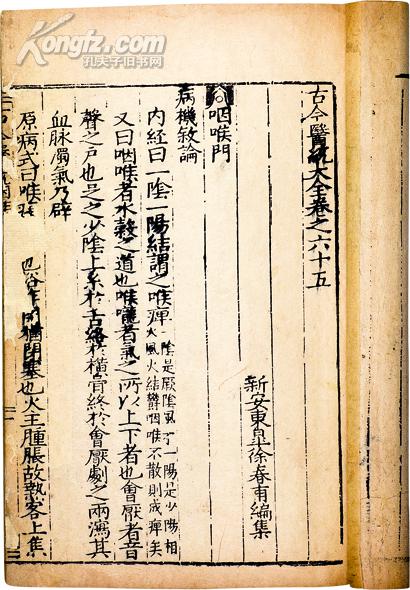 Kongfz.com
孔夫子旧书网
古今醫統大全卷之六十五
新安東臯徐春甫編集
咽喉門
病機敘論
内経曰一陰一陽結謂之喉痺一陰是厥陰風木一陽是少陽相火風火結欝咽喉不散則成痺矣
又曰咽喉者水穀之道也喉嚨者氣之所以上下者也會厭者音
聲之戶也足之少陰上系於舌絡於橫骨終於會厭劇之兩瀉其
血脉濁氣乃辟
原病式曰喉 也谷 猶閉塞也火主腫脹故熱客上焦